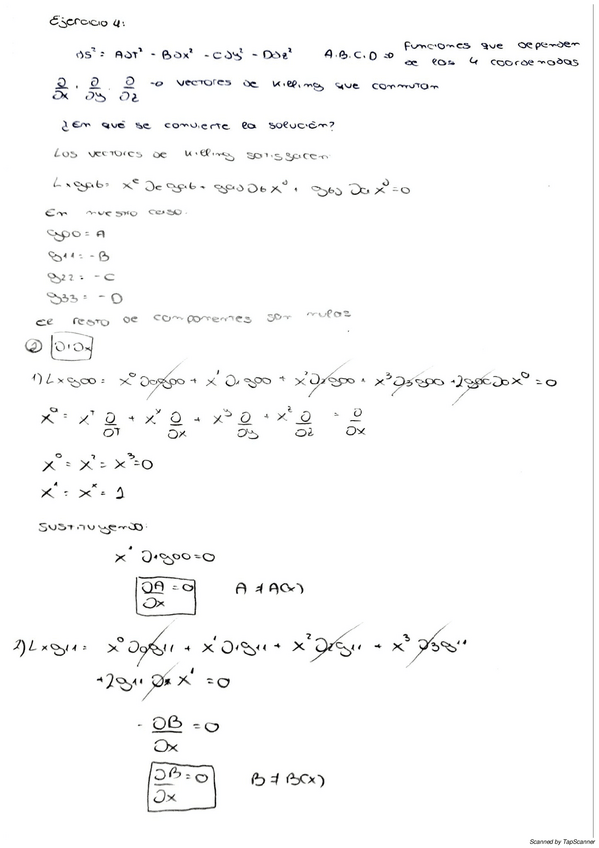 Ejercicio 4:
ds² = Adt² - Bdx² - Cdy² - Ddz² A.B.C.D → funciones que dependen
de las 4 coordenadas
∂/∂x, ∂/∂y, ∂/∂z → vectores de Killing que conmutan
¿En qué se convierte la solución?
Los vectores de Killing satisfacen
Lxgab = x^c ∂c gab + gad ∂b x^d + gbd ∂a x^d = 0
En nuestro caso:
g00 = A
g11 = -B
g22 = -C
g33 = -D
el resto de componentes son nulas
② ∂/∂x
1) Lxg00 = x⁰∂0g00 + x¹∂1g00 + x²∂2g00 + x³∂3g00 + 2g00∂0x⁰ = 0
x^a = x^t ∂/∂t + x^x ∂/∂x + x^y ∂/∂y + x^z ∂/∂z = ∂/∂x
x⁰ = x² = x³ = 0
x¹ = x^x = 1
Sustituyendo:
x¹ ∂1g00 = 0
∂A/∂x = 0 A ≠ A(x)
2) Lxg11 = x⁰∂0g11 + x¹∂1g11 + x²∂2g11 + x³∂3g11
+2g11 ∂x x¹ = 0
- ∂B/∂x = 0
∂B/∂x = 0 B ≠ B(x)
Scanned by TapScanner